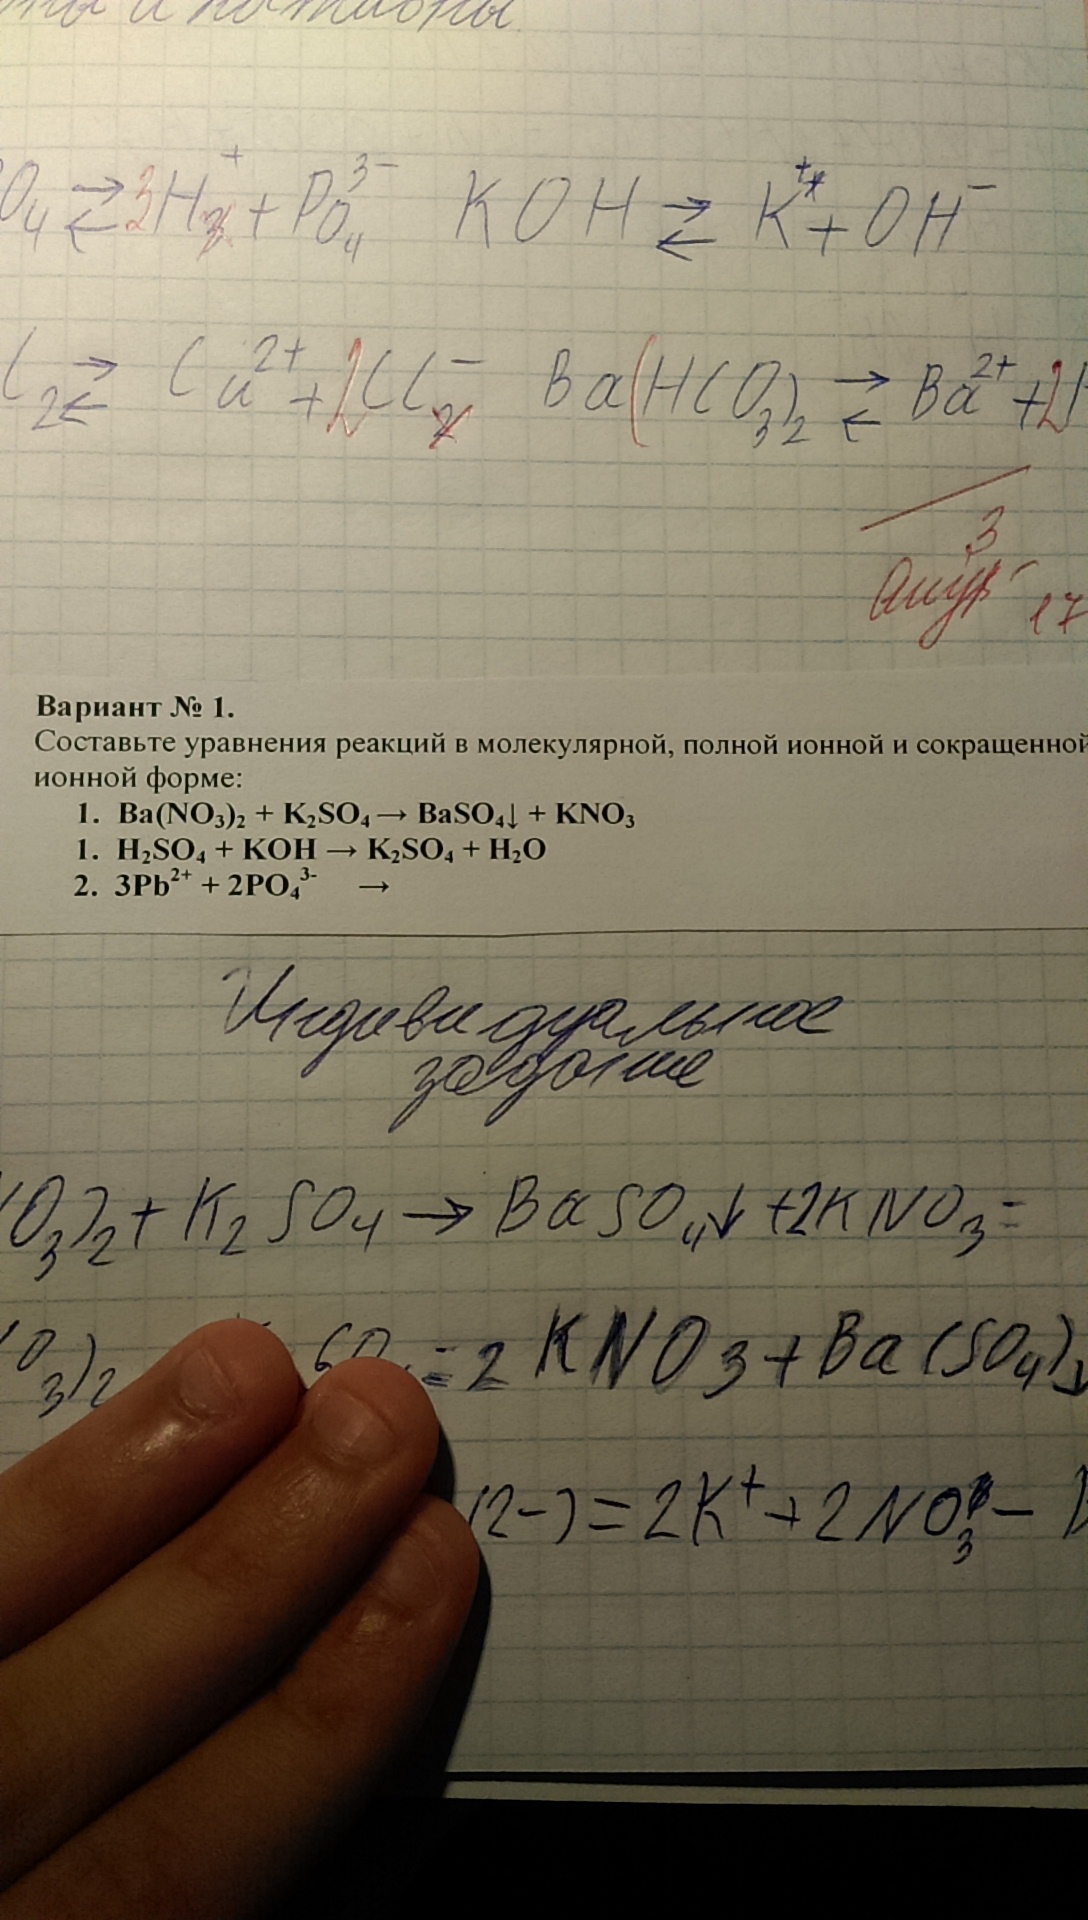 O₄ ⇄ 3H⁺ + PO₄³⁻ KOH ⇄ K⁺ + OH⁻
l₂ ⇄ Cu²⁺ + 2Cl⁻ Ba(HCO₃)₂ ⇄ Ba²⁺ + 2H
3
17
Вариант № 1.
Составьте уравнения реакций в молекулярной, полной ионной и сокращенной
ионной форме:
1. Ba(NO₃)₂ + K₂SO₄ → BaSO₄↓ + KNO₃
1. H₂SO₄ + KOH → K₂SO₄ + H₂O
2. 3Pb²⁺ + 2PO₄³⁻ →
Индивидуальное
задание
O₃)₂ + K₂SO₄ → BaSO₄↓ + 2KNO₃ =
O₃)₂ = 2KNO₃ + Ba(SO₄)↓
(2-) = 2K⁺ + 2NO₃⁻